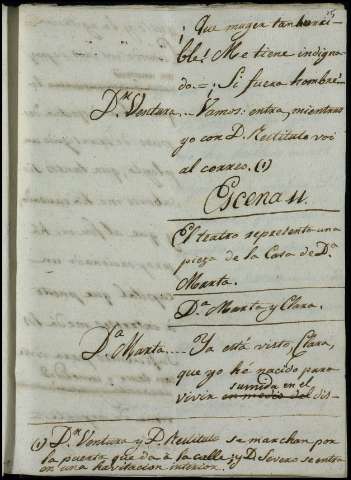 ¡Que muger tan horri-
ble! Me tiene indigna-
do.=¡Si fuera hombre!
Dⁿ. Ventura... Vamos: entra, mientras
yo con D. Restituto voi
al correo. (1)
Escena 11.
El teatro representa una
pieza de la Casa de Dª
Marta.
Dª Marta y Clara.
Dª Marta.... Ya está visto, Clara,
que yo hé nacido para
sumida en el
vivir en medio del dis-
(1) Dⁿ Ventura y D. Restituto se marchan por
la puerta que dá à la calle; y D. Severo se entra
en una havitacion interior.